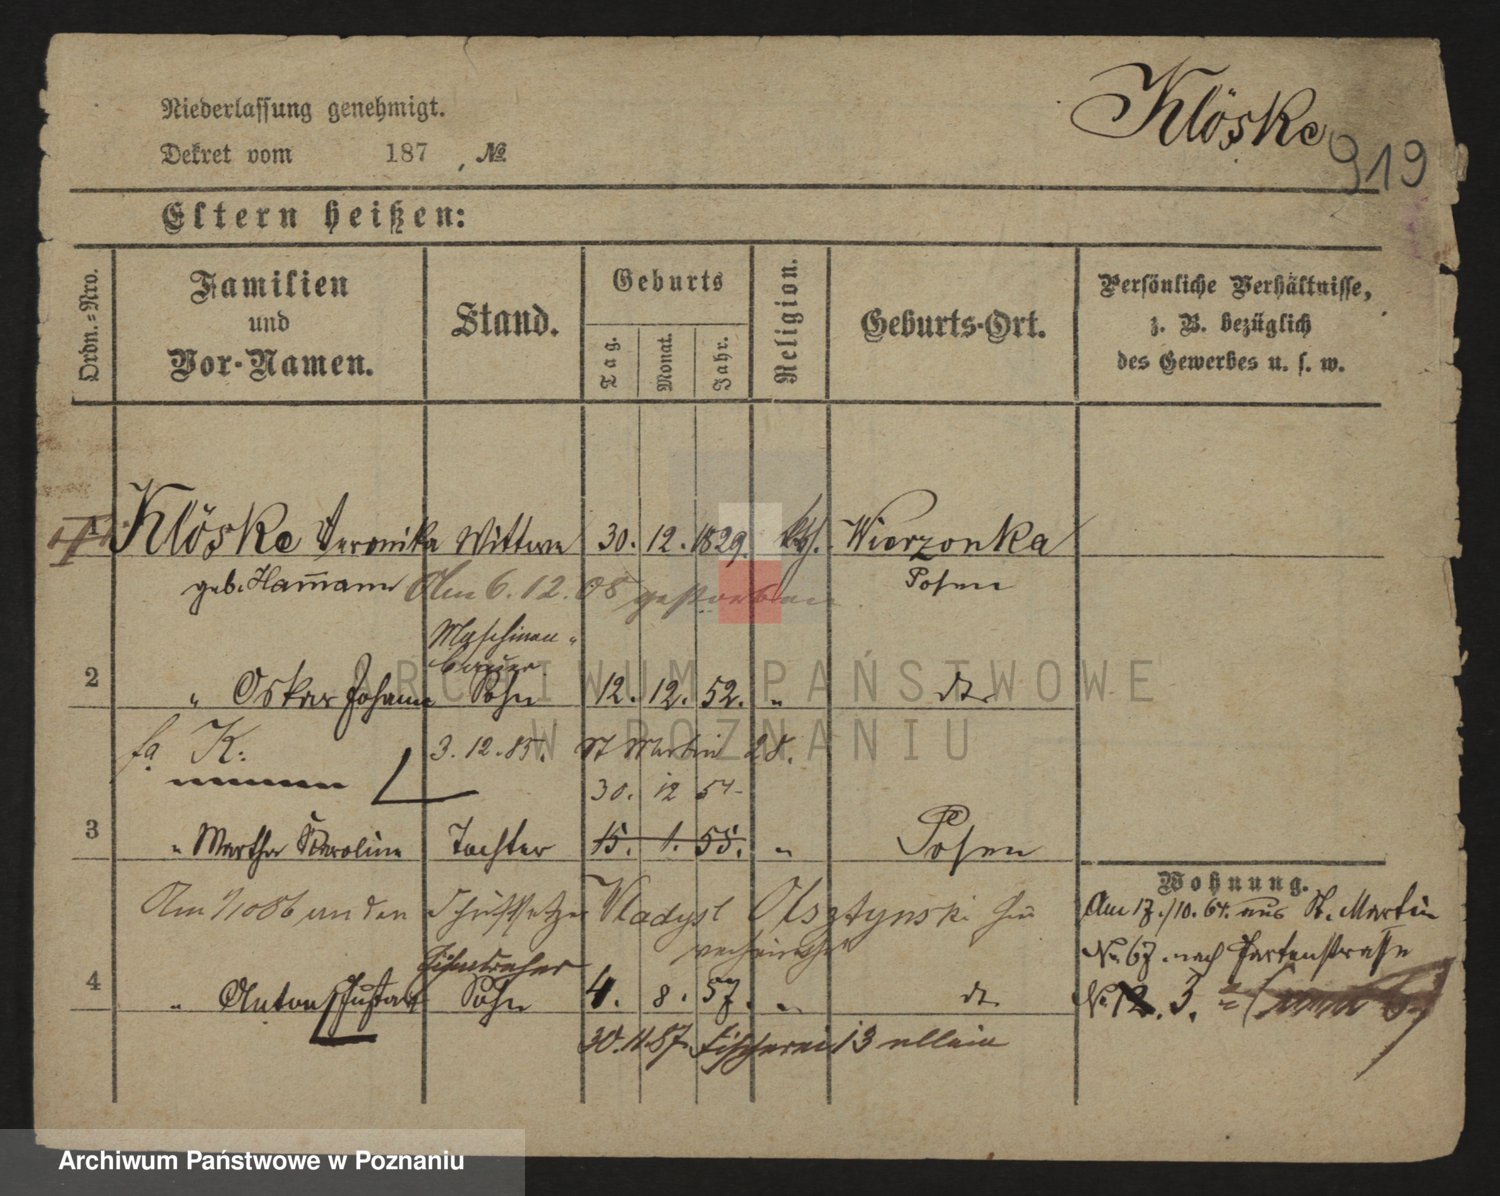 Niederlassung genehmigt.
Dekret vom 187 , №
Klöske
919
Eltern heißen:
Ordn.-Nro.
Familien
und
Vor-Namen.
Stand.
Geburts
Tag.
Monat.
Jahr.
Religion.
Geburts-Ort.
Persönliche Verhältnisse,
z. B. bezüglich
des Gewerbes u. s. w.
Klöske Veronika Wittwe 30. 12. 1829. kth. Wierzonka
geb. Hamann Am 6. 12. 08 gestorben Posen
Maschinen-
bauer
2 " Oskar Johann Sohn 12. 12. 52. " dt.
K. 3. 12. 85. St Martin 28.
30. 12 54
3 " Martha Karoline Tochter 15. 1. 55. " Posen
Wohnung.
Am 1/10 86 an den Schriftsetzer Vladysl Olsztynski
verheirathet
Am 17./10. 64. aus St. Martin
No. 67. nach Gartenstrasse
No. 12. 3.
Eisendreher
4 " Anton Gustav Sohn 4. 8. 57. " dt.
30. 11 87. Fischerei 13 allein
ARCHIWUM PAŃSTWOWE
W POZNANIU
Archiwum Państwowe w Poznaniu